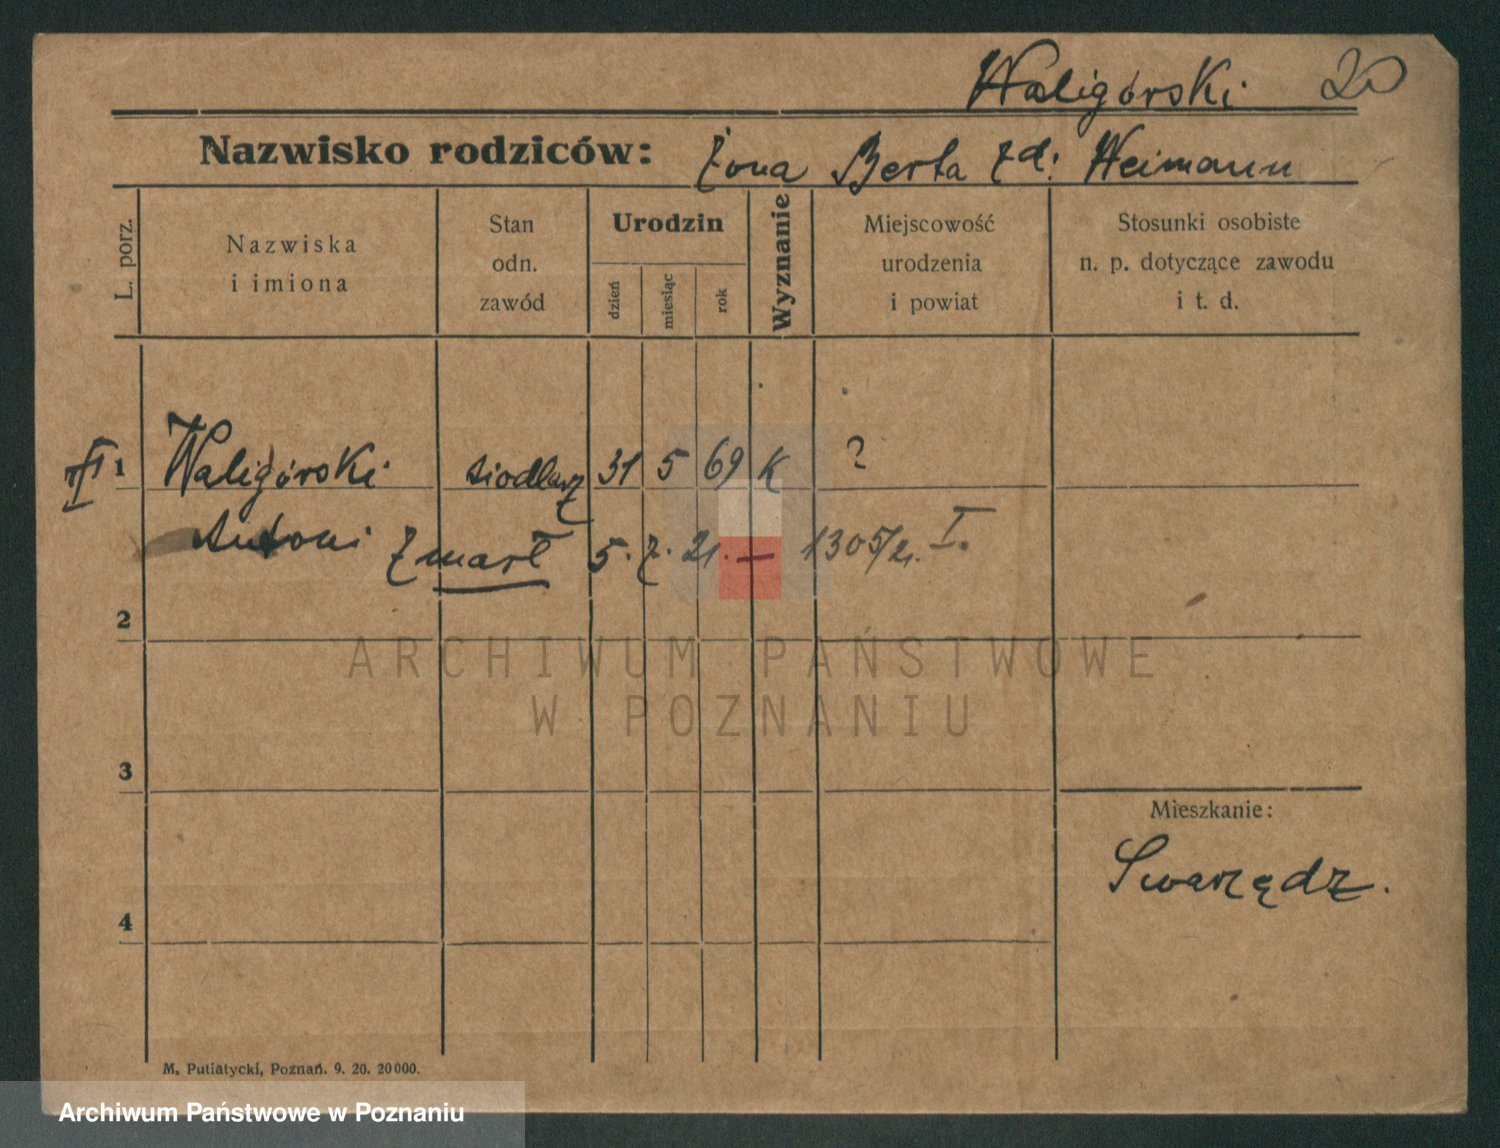 Waligórski 20
Nazwisko rodziców: Żona Berta zd: Heimann
L. porz.
Nazwiska
i imiona
Stan
odn.
zawód
Urodzin
dzień
miesiąc
rok
Wyznanie
Miejscowość
urodzenia
i powiat
Stosunki osobiste
n. p. dotyczące zawodu
i t. d.
1 Waligórski siodlarz 31 5 69 K ?
Antoni zmarł 5. 7. 21. — 1305/21. I.
2
ARCHIWUM PAŃSTWOWE
W POZNANIU
3
Mieszkanie:
Swarzędz.
4
M. Putiatycki, Poznań. 9. 20. 20000.
Archiwum Państwowe w Poznaniu